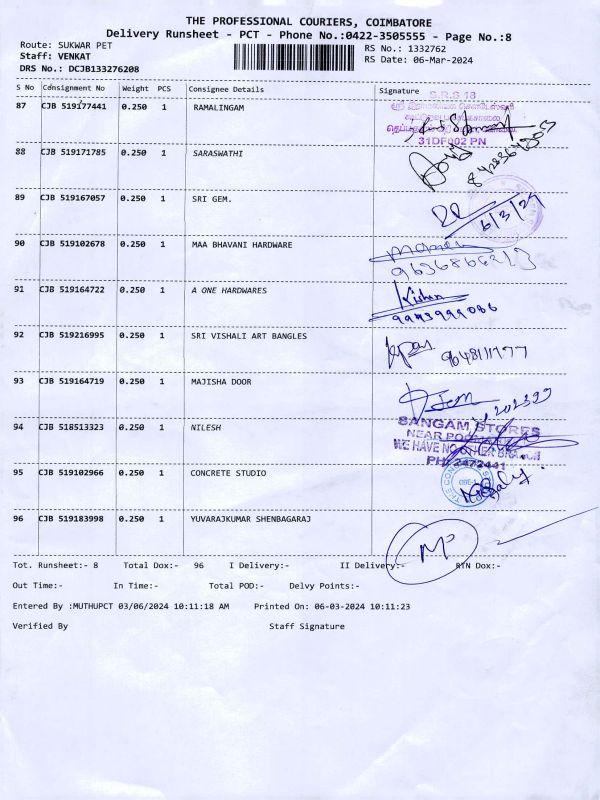 THE PROFESSIONAL COURIERS, COIMBATORE
Delivery Runsheet - PCT - Phone No.:0422-3505555 - Page No.:8
Route: SUKWAR PET
Staff: VENKAT
DRS No.: DCJB133276208
RS No.: 1332762
RS Date: 06-Mar-2024
S No Consignment No Weight PCS Consignee Details Signature
87 CJB 519177441 0.250 1 RAMALINGAM
S.R.S 18
31DF002 PN
88 CJB 519171785 0.250 1 SARASWATHI
89 CJB 519167057 0.250 1 SRI GEM.
6/3/24
90 CJB 519102678 0.250 1 MAA BHAVANI HARDWARE
91 CJB 519164722 0.250 1 A ONE HARDWARES
Kishan
92 CJB 519216995 0.250 1 SRI VISHALI ART BANGLES
93 CJB 519164719 0.250 1 MAJISHA DOOR
94 CJB 518513323 0.250 1 NILESH
SANGAM STORES
NEAR
WE HAVE NO OTHER BRANCH
PH: 2472441
95 CJB 519102966 0.250 1 CONCRETE STUDIO
96 CJB 519183998 0.250 1 YUVARAJKUMAR SHENBAGARAJ
Tot. Runsheet:- 8 Total Dox:- 96 I Delivery:- II Delivery:- RTN Dox:-
Out Time:- In Time:- Total POD:- Delvy Points:-
Entered By :MUTHUPCT 03/06/2024 10:11:18 AM Printed On: 06-03-2024 10:11:23
Verified By Staff Signature